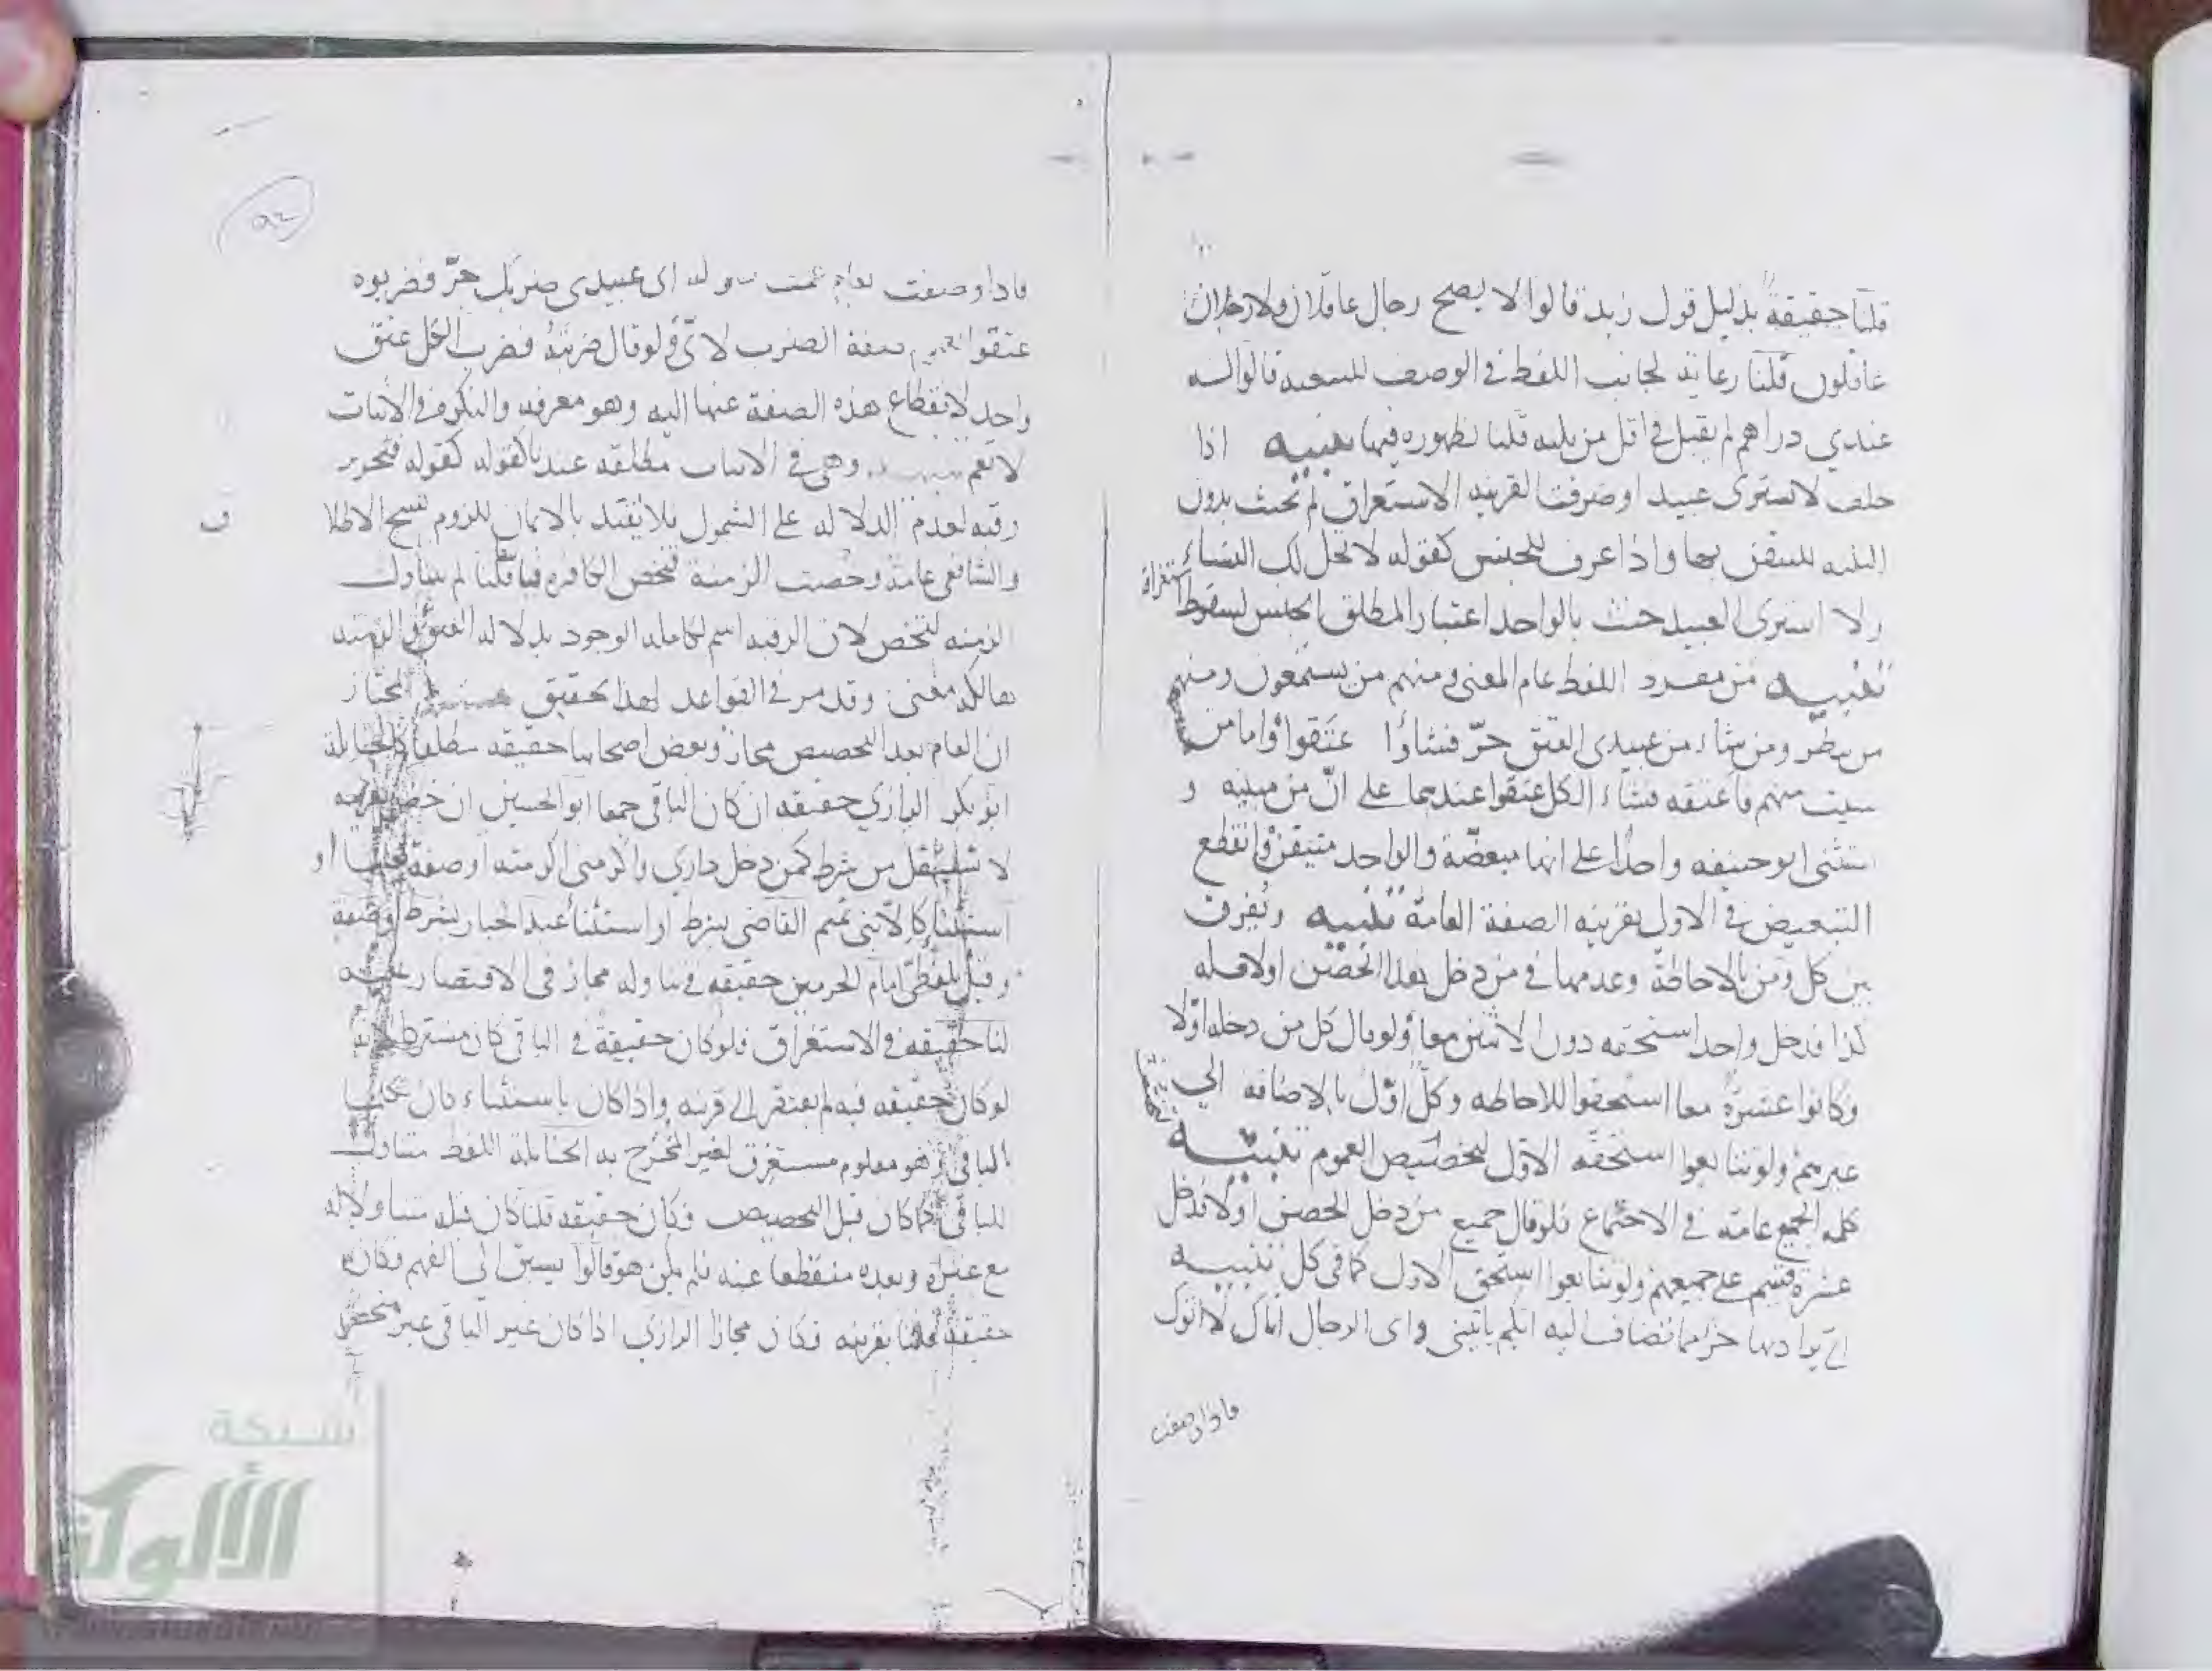 قلنا حقيقة بدليل قول زيد قالوا لا يصح رجال عاقلان ولا رجلان
عاقلون قلنا رعاية لجانب اللفظ في الوصف قالوا له
عندي دراهم لم يقبل في اقل من ثلثه قلنا لظهوره فيها تنبيه اذا
حلف لا يشترى عبيدا وصرفت القرينه الاستغراق لم يحنث بدون
الثلثه للتيقن بها واذا عرف للجنس كقوله لا تحل لك النساء
ولا اشترى العبيد حنث بالواحد اعتبارا لمطلق الجنس لسقوط
استغراقه
تنبيه من مفرد اللفظ عام المعنى ومنهم من يستمعون ومنهم
من ينظر ومن شاء من عبيدى العتق حرّ فشاؤا عتقوا واما من
شئت منهم فاعتقه فشاء الكل عتقوا عندهما على انّ من مبينه و
استثنى ابو حنيفه واحدا على انها مبعضة والواحد متيقن وانقطع
التبعيض في الاول بقرينه الصفة العامة تنبيه ونفرق
بين كل ومن بالاحاطة وعدمها في من دخل هذا الحصن اولا فله
كذا فدخل واحد استحقه دون الاثنين معا ولو قال كل من دخله اولا
وكانوا عشرة معا استحقوا للاحاطه وكل اوّل بالاضافه الى
غيرهم ولو تتابعوا استحقه الاوّل لتخصيص العموم تنبيه
كلمه الجميع عامّه في الاجتماع فلو قال جميع من دخل الحصن اولا فدخل
عشرة قسم على جميعهم ولو تتابعوا استحق الاول كما في كل تنبيه
اى يراد بها جزء مما تضاف اليه ايكم ياتينى واى الرجال اتاك
فاذا وصفت
فاذا وصفت بعام عمت كقوله اى عبيدى ضربك حرّ فضربوه
عتقوا لعموم صفة الضرب لا اىّ ولو قال ضربته فضرب الكل عتق
واحد لانقطاع هذه الصفة عنها اليه وهو معرفه والنكره في الاثبات
لا تعم وهى في الاثبات مطلقه عندنا كقوله فتحرير
رقبه لعدم الدلاله على الشمول فلا يقيد بالايمان للزوم نسخ الاطلا
والشافعى عامة وخصت الزمنة فتخص الكافره قلنا لم يتناول
الزمنه لتخص لان الرقبه اسم لكامله الوجود بدلاله العتق والزمنه
هالكه معنى وقد مر في القواعد لهذا تحقيق المختار
ان العام بعد التخصيص مجاز وبعض اصحابنا حقيقه مطلقا كالحنابلة
ابو بكر الرازي حقيقه ان كان الباقى جمعا ابو الحسين ان خص بقرينه
لا تستقل من شرط كمن دخل داري واكرمنى اكرمته او صفة او
استثنا القاضى بشرط او استثنا عبد الجبار بشرط او صفة
وقيل بلفظى امام الحرمين حقيقه في تناوله مجاز في الاقتصار عليه
لنا حقيقه في الاستغراق فلو كان حقيقة في الباقى كان مشتركا لانه
لو كان حقيقه فيه لم يفتقر الى قرينه واذا كان باستثناء كان
الباقى وهو معلوم مستغرق لغير المخرج به الحنابلة اللفظ متناول
للباقى كما كان قبل التخصيص فكان حقيقه قلنا كان قبله متناولا له
مع غيره وبعده منقطعا عنه فلم يكن هو قالوا يسبق الى الفهم فكان
حقيقه قلنا بقرينه فكان مجازا الرازي اذا كان غير الباقى غير منحصر
شبكة
الألوكة